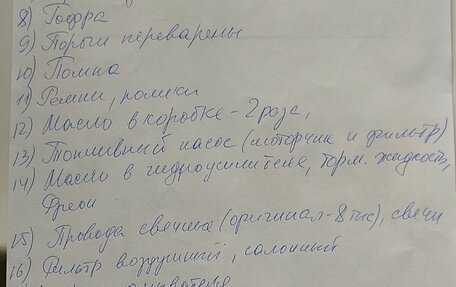 8) Гофра
9) Пороги переварены
10) Помпа
11) Ремни, ролики
12) Масло в коробке - 2 раза,
13) Топливный насос (моторчик и фильтр)
14) Масло в гидроусилителе, торм. жидкость,
Фреон
15) Провода свечные (оригинал - 8 тыс), свечи
16) Фильтр воздушный, салонный